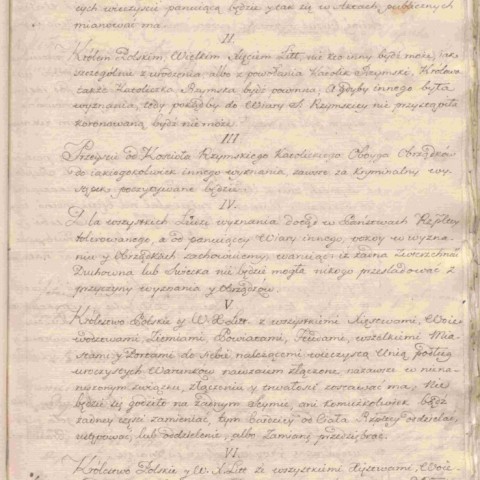 wych wieczyście panuiącą będzie y tak się w Aktach publicznych
mianować ma.
II.
Królem Polskim, Wielkim Xięciem Litt. nie kto inny bydź może, iak
szczególnie z urodzenia albo z powołania Katolik Rzymski, Królowa
także Katoliczka Rzymska bydź powinna, a gdyby innego była
wyznania, tedy pokądby do Wiary S. Rzymskiey nie przystąpiła
koronowaną bydź nie może.
III
Przeyście od Kościoła Rzymskiego Katolickiego Oboyga Obrządków
do iakiegokolwiek innego wyznania, zawsze za kryminalny wy-
stępek poczytywane będzie.
IV.
Dla wszystkich Ludzi wyznania dotąd w Państwach Rzpltey
tollerowanego, a od panuiącey Wiary innego, pokóy w wyzna-
niu y Obrządkach zachowuiemy, waruiąc, iż żadna Zwierzchność
Duchowna lub Swiecka nie będzie mogła nikogo prześladować z
przyczyny wyznania y Obrządków.
V
Królestwo Polskie y W. X. Litt. z wszystkiemi Xięstwami, Woie-
wodztwami, Ziemiami, Powiatami, Lennami, wszelkimi Mia-
stami y Portami do siebie należącemi wieczystą Unią podług
uroczystych Warunków nawzaiem złączone, nazawsze w niena-
ruszonym związku, złączeniu y trwałości zostawać ma; Nie
będzie się godziło na żadnym Seymie, ani komużkolwiek bądź
żadney części zamieniać, tym bardziey od Ciała Rzpltey oddzielać,
ustępować, lub oddzielenie, albo Zamianę przedsiębrać.
VI.
Królestwo Polskie y W. X. Litt. ze wszystkiemi Xięstwami, Woie-